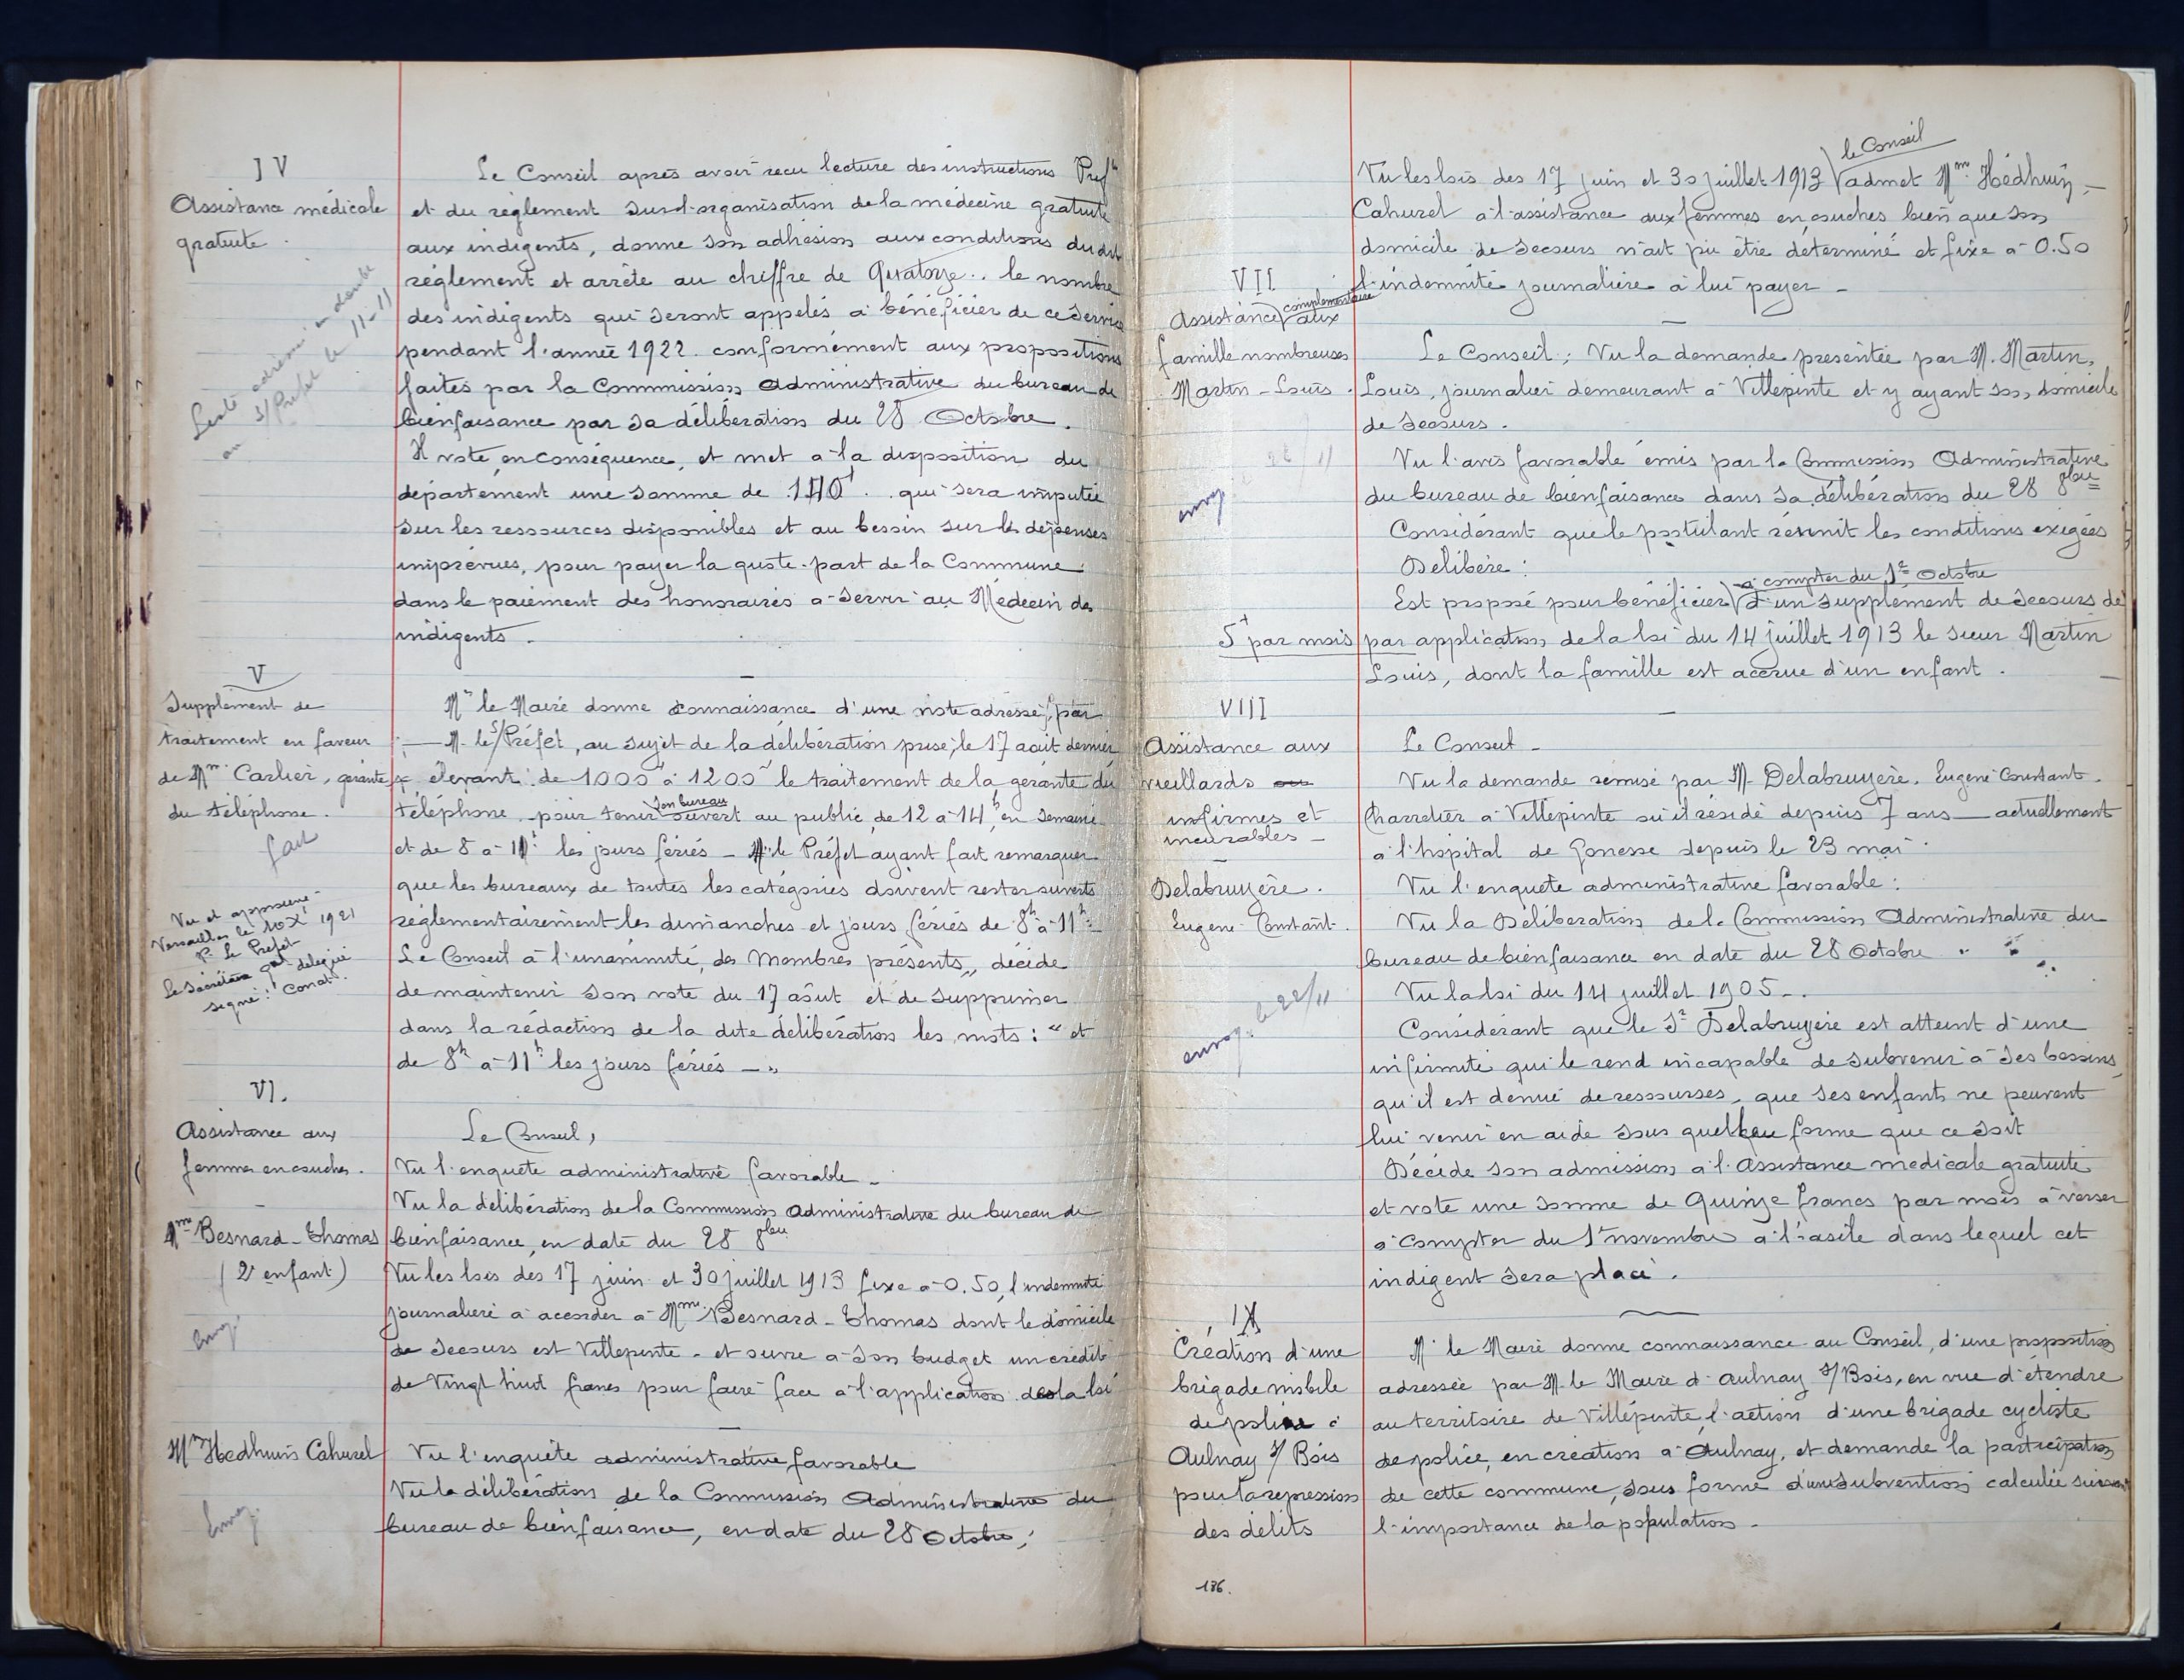 IV
Assistance médicale
gratuite.
Le Conseil après avoir reçu lecture des instructions Pref
et du règlement sur l'organisation de la médecine gratuite
aux indigents, donne son adhésion aux conditions dudit
règlement et arrête au chiffre de Quatorze.. le nombre
des indigents qui seront appelés à bénéficier de ce service
pendant l'année 1922 conformément aux propositions
faites par la Commission Administrative du bureau de
bienfaisance par sa délibération du 28 Octobre.
Il vote, en conséquence, et met à la disposition du
département une somme de 140f.. qui sera imputée
sur les ressources disponibles et au besoin sur les dépenses
imprévues, pour payer la quote-part de la Commune
dans le paiement des honoraires à servir au Médecin des
indigents.
au S/Préfet le 11-11
V
Supplément de
traitement en faveur
de Mme Carlier, gérante
du téléphone.
fait
Vu et approuvé
Versailles le 10 X 1921
P. Le Préfet
Le Secrétaire gal délégué
signé: Conat.
Mr le Maire donne connaissance d'une note adressée, par
M. le S/Préfet, au sujet de la délibération prise, le 17 août dernier
élevant de 1000f à 1200f le traitement de la gérante du
téléphone pour tenir son bureau ouvert au public, de 12 à 14h, en semaine
et de 8 à 11h les jours fériés - M. le Préfet ayant fait remarquer
que les bureaux de toutes les catégories doivent rester ouverts
réglementairement les dimanches et jours fériés de 8h à 11h
Le Conseil à l'unanimité, des Membres présents, décide
de maintenir son vote du 17 août et de supprimer
dans la rédaction de la dite délibération les mots: " et
de 8h à 11h les jours fériés - "
VI.
Assistance aux
femmes en couches.
Le Conseil,
Vu l'enquête administrative favorable -
Vu la délibération de la Commission Administrative du bureau de
bienfaisance, en date du 28 8bre
Mme Besnard-Thomas
(2e enfant)
envoy.
Vu les lois des 17 juin et 30 juillet 1913 fixe à 0.50, l'indemnité
journalière à accorder à Mme Besnard-Thomas dont le domicile
de secours est Villepinte - et ouvre à son budget un crédit
de Vingt huit francs pour faire face à l'application de la loi
Me Hedhuin Cahurel
envoy.
Vu l'enquête administrative favorable
Vu la délibération de la Commission Administrative du
bureau de bienfaisance, en date du 28 Octobre;
le Conseil
Vu les lois des 17 juin et 30 juillet 1913 admet Mme Hédhuin -
Cahurel à l'assistance aux femmes en couches bien que son
domicile de secours n'ait pu être déterminé et fixe à 0.50
l'indemnité journalière à lui payer -
VII
Assistance complémentaire aux
famille nombreuses
Martin-Louis.
envoy. 22/11
Le Conseil; Vu la demande présentée par M. Martin,
Louis, journalier demeurant à Villepinte et y ayant son domicile
de secours.
Vu l'avis favorable émis par la Commission Administrative
du bureau de bienfaisance dans sa délibération du 28 8bre
Considérant que le postulant réunit les conditions exigées
Délibère:
à compter du 1er Octobre
Est proposé pour bénéficier d'un supplément de secours de
5f par mois par application de la loi du 14 juillet 1913 le sieur Martin
Louis, dont la famille est accrue d'un enfant.
VIII
Assistance aux
vieillards
infirmes et
incurables -
Delabruyère.
Eugène-Constant.
envoy. le 22/11
Le Conseil -
Vu la demande remise par M. Delabruyère, Eugène Constant.
Charretier à Villepinte où il réside depuis 7 ans - actuellement
à l'hôpital de Gonesse depuis le 23 mai.
Vu l'enquête administrative favorable:
Vu la Délibération de la Commission Administrative du
bureau de bienfaisance en date du 28 Octobre
Vu la loi du 14 juillet 1905 -
Considérant que le Sr Delabruyère est atteint d'une
infirmité qui le rend incapable de subvenir à ses besoins,
qu'il est dénué de ressources, que ses enfants ne peuvent
lui venir en aide sous quelque forme que ce soit
Décide son admission à l'Assistance médicale gratuite
et vote une somme de Quinze francs par mois à verser
à compter du 1er novembre à l'asile dans lequel cet
indigent sera placé.
IX
Création d'une
brigade mobile
de police à
Aulnay s/ Bois
pour la repression
des délits
M. le Maire donne connaissance au Conseil, d'une proposition
adressée par M. le Maire d'Aulnay s/Bois, en vue d'étendre
au territoire de Villepinte l'action d'une brigade cycliste
de police, en création à Aulnay, et demande la participation
de cette commune, sous forme d'une subvention calculée suivant
l'importance de la population -
136.